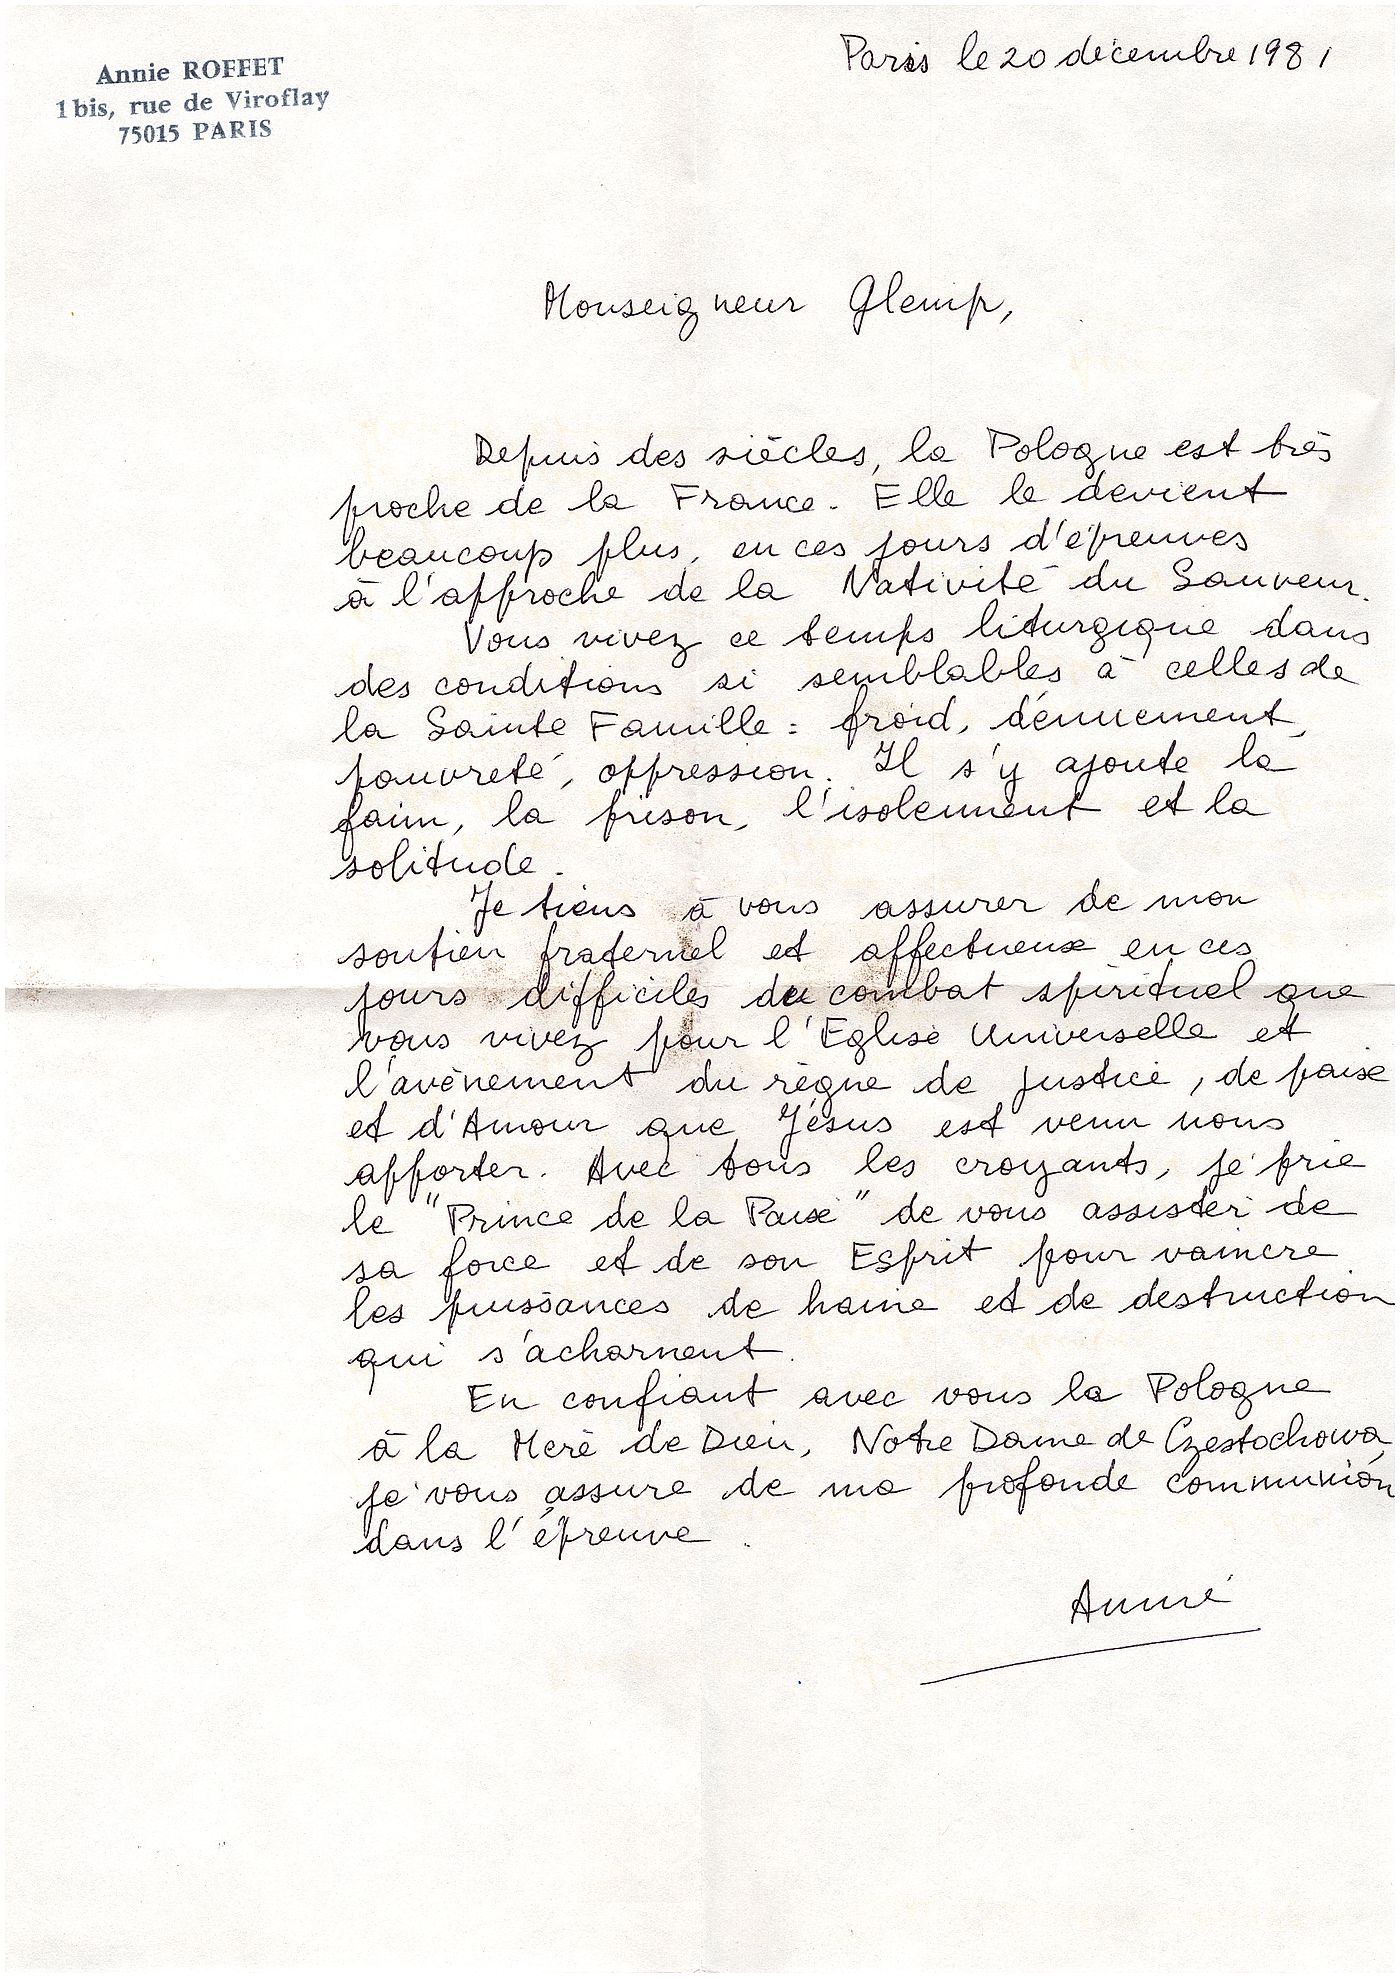 Annie ROFFET
1 bis, rue de Viroflay
75015 PARIS
Paris le 20 décembre 1981
Monseigneur Glemp,
Depuis des siècles, la Pologne est très
proche de la France. Elle le devient
beaucoup plus, en ces jours d'épreuves
à l'approche de la Nativité du Sauveur.
Vous vivez ce temps liturgique dans
des conditions si semblables à celles de
la Sainte Famille : froid, dénuement,
pauvreté, oppression. Il s'y ajoute la
faim, la prison, l'isolement et la
solitude.
Je tiens à vous assurer de mon
soutien fraternel et affectueux en ces
jours difficiles de combat spirituel que
vous vivez pour l'Eglise Universelle et
l'avènement du règne de justice, de paix
et d'Amour que Jésus est venu nous
apporter. Avec tous les croyants, je prie
le "Prince de la Paix" de vous assister de
sa force et de son Esprit pour vaincre
les puissances de haine et de destruction
qui s'acharnent.
En confiant avec vous la Pologne
à la Mère de Dieu, Notre Dame de Czestochowa,
je vous assure de ma profonde communion
dans l'épreuve.
Annie